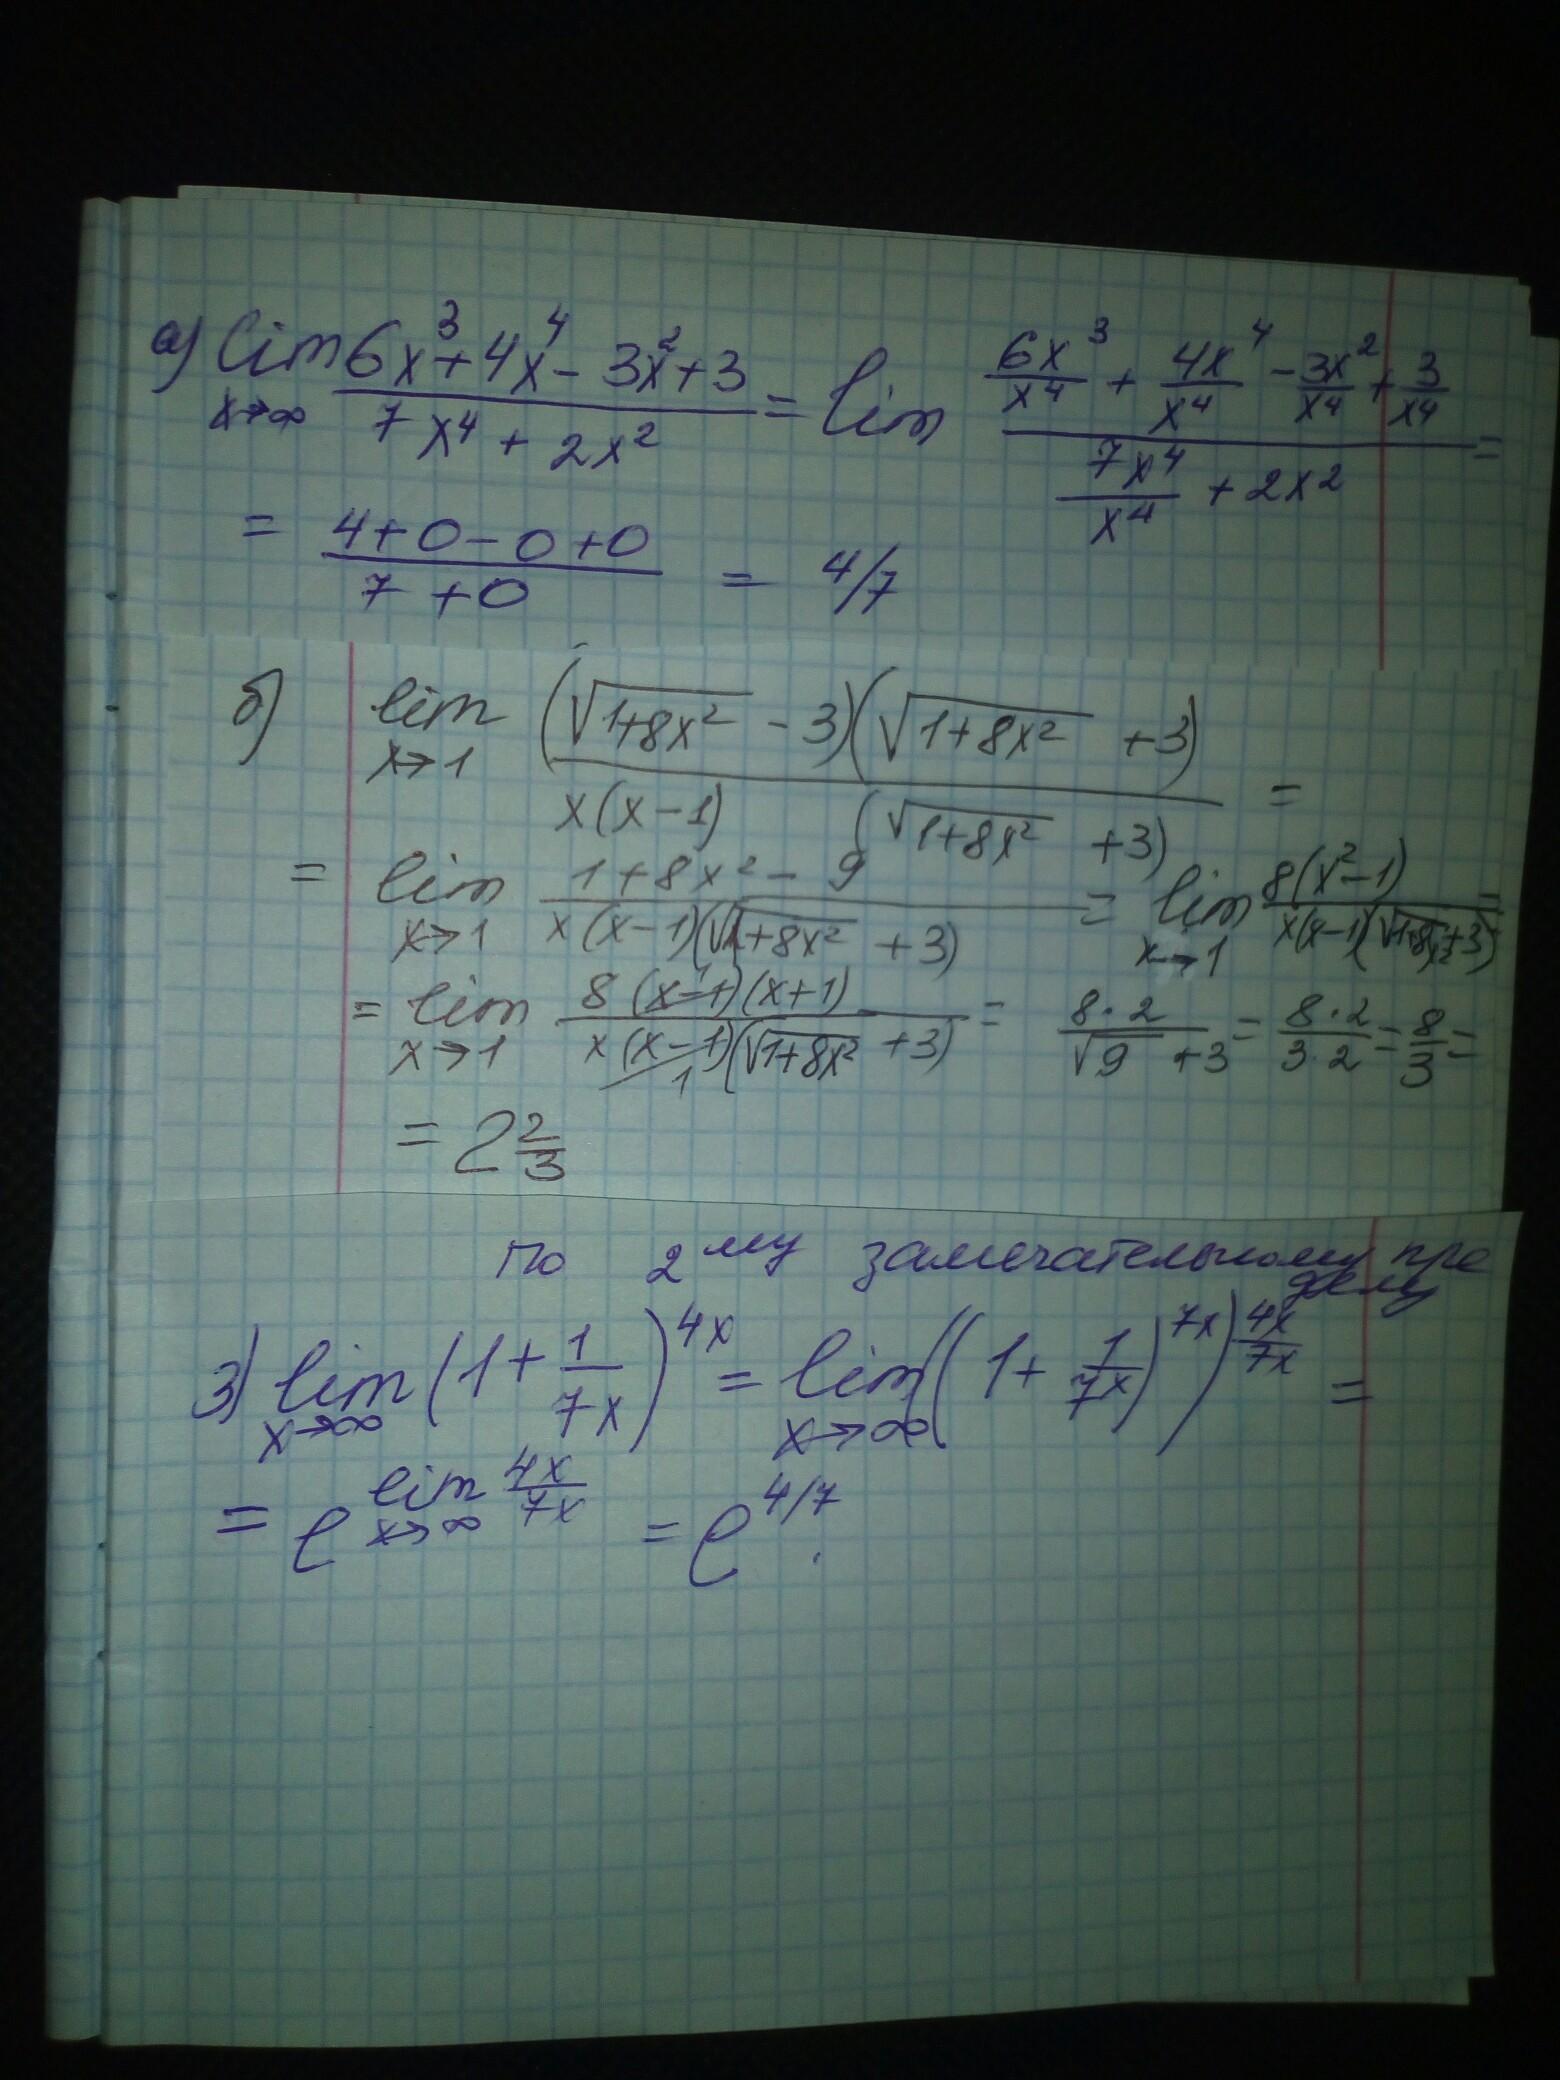 а) lim x→∞ (6x³+4x⁴-3x²+3)/(7x⁴+2x²) = lim (6x³/x⁴ + 4x⁴/x⁴ - 3x²/x⁴ + 3/x⁴)/(7x⁴/x⁴ + 2x²) =
= (4+0-0+0)/(7+0) = 4/7
б) lim x→1 (√(1+8x²) - 3)(√(1+8x²) + 3)/(x(x-1) (√(1+8x²) + 3)) =
= lim x→1 (1+8x²-9)/(x(x-1)(√(1+8x²) + 3)) = lim x→1 8(x²-1)/(x(x-1)(√(1+8x²)+3)) =
= lim x→1 8(x-1)(x+1)/(x(x-1)(√(1+8x²) + 3)) = 8·2/(√9 + 3) = 8·2/3·2 = 8/3 =
= 2 2/3
по 2му замечательному пределу
3) lim x→∞ (1 + 1/7x)^4x = lim x→∞ ((1 + 1/7x)^7x)^4x/7x =
= e^lim x→∞ 4x/7x = e^4/7.